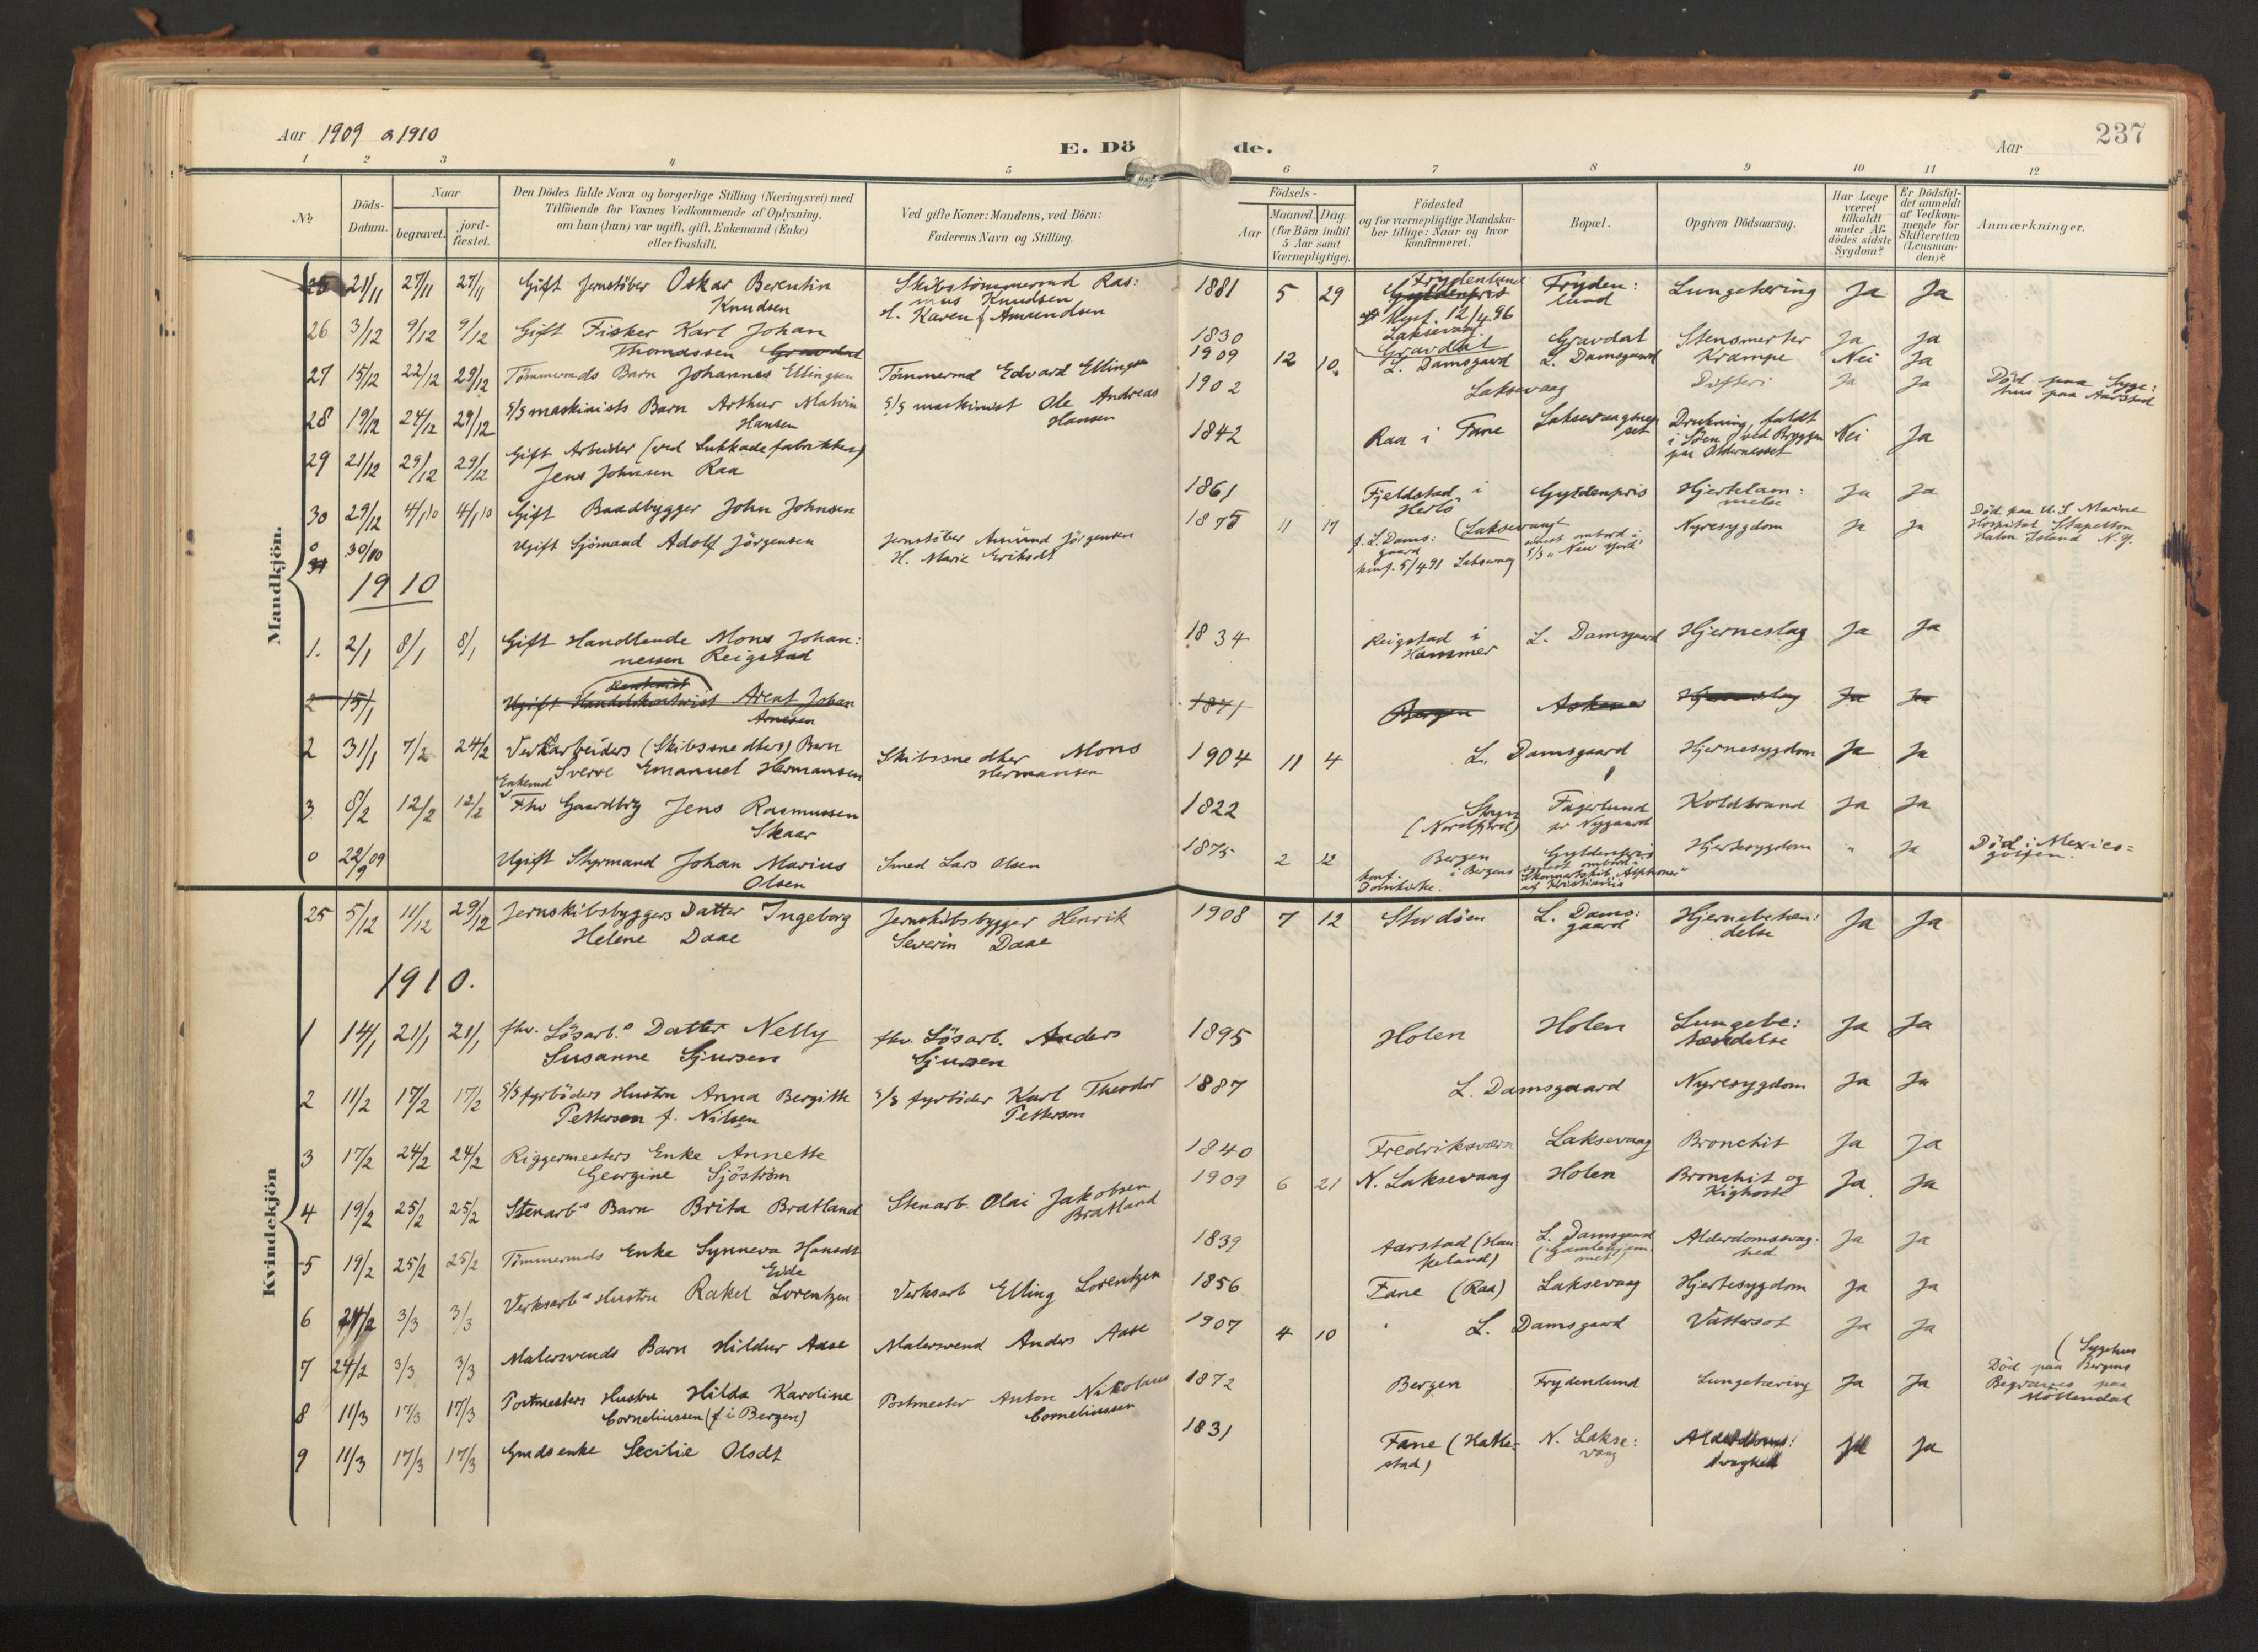 Aar 1909 & 1910
E. Dö de.
Aar
237
1 2 3 4 5 6 7 8 9 10 11 12
No
Döds-
Datum.
Naar
begravet.
jord-
fæstet.
Den Dödes fulde Navn og borgerlige Stilling (Næringsvei) med
Tilföiende for Voxnes Vedkommende af Oplysning,
om han (hun) var ugift, gift, Enkemand (Enke)
eller fraskilt.
Ved gifte Koner: Mandens, ved Börn:
Faderens Navn og Stilling.
Födsels-
Aar
Maaned.
Dag.
(for Börn indtil
5 Aar samt
Værnepligtige).
Födested
og for værnepligtige Mandska-
ber tillige: Naar og hvor
konfirmeret.
Bopæl.
Opgiven Dödsaarsag.
Har Læge
været
tilkaldt
under Af-
dödes sidste
Sygdom?
Er Dödsfal-
det anmeldt
af Vedkom-
mende for
Skifteretten
(Lensman-
den)?
Anmærkninger.
Mandkjön.
25 21/11 27/11 27/11 Gift Jernstöber Oskar Berentin
Knudsen
Skibstömmermd Ras:
mus Knudsen
H. Karen f. Amundsen
1881 5 29
Frydenlund
Gyldenpris
Konf. 12/4 96
Laksevaag
Fryden:
lund
Lungetæring Ja Ja
26 3/12 9/12 9/12 Gift Fisker Karl Johan
Thomassen Gravdal
1830 Gravdal Gravdal Stensmerter Ja Ja
27 15/12 22/12 29/12 Tömmermds Barn Johannes Ellingsen
Tömmermd Edvard Ellingsen
1909 12 10 L. Damsgaard L. Damsgaard Krampe Nei Ja
28 19/12 24/12 29/12 S/S maskinists Barn Arthur Malvin
Hansen
S/S maskinist Ole Andreas
Hansen
1902 Laksevaag Difteri Ja Ja
Död paa Syge:
hus paa Aarstad
29 21/12 29/12 29/12 Gift Arbeider (ved Sukkadefabrikken)
Jens Johnsen Raa
1842 Raa i Fane Laksevaagsnes
set
Drukning, faldt
i Söen ved Bryggen
paa Aldernesset
Nei Ja
30 29/12 4/1 10 4/1 10 Gift Baadbygger John Johnsen
1861 Fjeldstad i
Herlö
Gyldenpris Hjertelam:
melse
Ja Ja
0
31 30/10 Ugift Sjömand Adolf Jörgensen
Jernstöber Amund Jörgensen
H. Marie Eriksdt
1875 11 17
f. L. Dams:
gaard
konf. 5/4 91 Laksevaag
(Laksevaag
senest ombord i
S/S "New York"
Nyresygdom Ja Ja
Död paa U.S Marine
Hospital Stapelton
Staten Island N.Y.
1910
1. 2/1 8/1 8/1 Gift Handlende Mons Johan:
nessen Reigstad
1834 Reigstad i
Hammer
L. Damsgaard Hjerneslag Ja Ja
2 15/1 Ugift Handelskontorist Arent Johan
Arnesen
1871 Bergen Askenes Hjerneslag Ja Ja
2 31/1 7/2 24/2 Verksarbeiders (Skibssnedkers) Barn
Sverre Emanuel Hermansen
Skibssnedker Mons
Hermansen
1904 11 4 L. Damsgaard Hjernesygdom Ja Ja
3 8/2 12/2 12/2 Enkemd
Fhv Gaardbrg Jens Rasmussen
Skaar
1822 Stryn
(Nordfjord)
Fagerlund
pr Nygaard
Koldbrand Ja Ja
0 22/9 09 Ugift Styrmand Johan Marius
Olsen
Smed Lars Olsen
1875 2 12 Bergen
konf. i Bergens
Domkirke.
Gyldenpris
senest ombord i
Skonnertskib "Alphonse"
af Kristiania
Hjertesygdom " Ja
Död i Mexico=
golfen.
Kvindekjön
25 5/12 11/12 29/12 Jernskibsbyggers Datter Ingeborg
Helene Daae
Jernskibsbygger Henrik
Severin Daae
1908 7 12 Stordöen L. Dams:
gaard
Hjernebetæn:
delse
Ja Ja
1910.
1 14/1 21/1 21/1 fhv. Lösarbs Datter Nelly
Susanne Sjursen
fhv. Lösarb. Anders
Sjursen
1895 Holen Holen Lungebe:
tændelse
Ja Ja
2 11/2 17/2 17/2 S/S fyrböders Hustru Anna Bergitte
Petterson f. Nilsen
S/S fyrböder Karl Theodor
Petterson
1887 L. Damsgaard Nyresygdom Ja Ja
3 17/2 24/2 24/2 Riggermesters Enke Annette
Georgine Sjöström
1840 Fredriksværn Laksevaag Bronchit Ja Ja
4 19/2 25/2 25/2 Stenarbs Barn Brita Bratland
Stenarb. Olai Jakobsen
Bratland
1909 6 21 N. Laksevaag Holen Bronchit og
Kighoste
Ja Ja
5 19/2 25/2 25/2 Tömmermds Enke Synneva Hansdt
Eide
1839 Aarstad (Hau
keland)
L. Damsgaard
(Gamlehjem
met)
Alderdomssvag:
hed
Ja Ja
6 24/2 3/3 3/3 Verksarbs Hustru Rakel Lorentzen
Verksarb Elling Lorentzen
1856 Fane (Raa) Laksevaag Hjertesygdom Ja Ja
7 24/2 3/3 3/3 Malersvends Barn Hildur Aase
Malersvend Anders Aase
1907 4 10 L. Damsgaard Vattersot Ja Ja
8 11/3 17/3 17/3 Postmesters Hustru Hilda Karoline
Corneliussen (f. i Bergen)
Postmester Anton Nikolaus
Corneliussen
1872 Bergen Frydenlund Lungetæring Ja Ja
(Sygehus
Död paa Bergens
Begraves paa
Möllendal
9 11/3 17/3 17/3 Gmdsenke Secilie Olsdt
1831 Fane (Hatle:
stad)
N. Lakse:
vaag
Alderdoms:
svaghed
Ja Ja